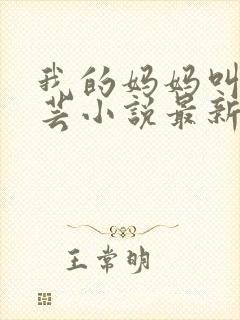 我的妈妈叫
芸小说最新
王常明